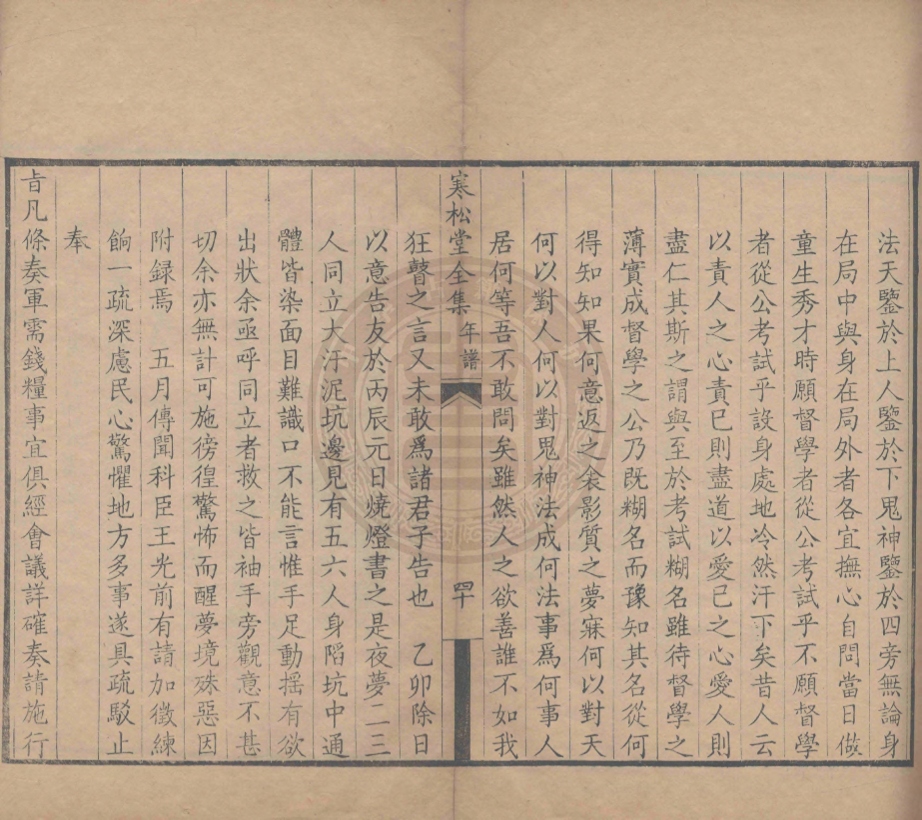 法天鑒於上人鑒於下鬼神鑒於四旁無論身
在局中與身在局外者各宜撫心自問當日做
童生秀才時願督學者從公考試乎不願督學
者從公考試乎設身處地冷然汗下矣昔人云
以責人之心責已則盡道以愛已之心愛人則
盡仁其斯之謂與至於考試糊名雖待督學之
薄實成督學之公乃既糊名而豫知其名從何
得知知果何意返之衾影質之夢寐何以對天
何以對人何以對鬼神法成何法事爲何事人
居何等吾不敢問矣雖然人之欲善誰不如我
寒松堂全集 年譜 四十
狂瞽之言又未敢爲諸君子告也 乙卯除日
以意告友於丙辰元日燒燈書之是夜夢二三
人同立大汙泥坑邊見有五六人身陷坑中通
體皆染面目難識口不能言惟手足動搖有欲
出狀余亟呼同立者救之皆袖手旁觀意不甚
切余亦無計可施徬徨驚怖而醒夢境殊惡因
附録焉 五月傳聞科臣王光前有請加徵練
餉一疏深慮民心驚懼地方多事遂具疏駁止
奉
旨凡條奏軍需錢糧事宜俱經會議詳確奏請施行